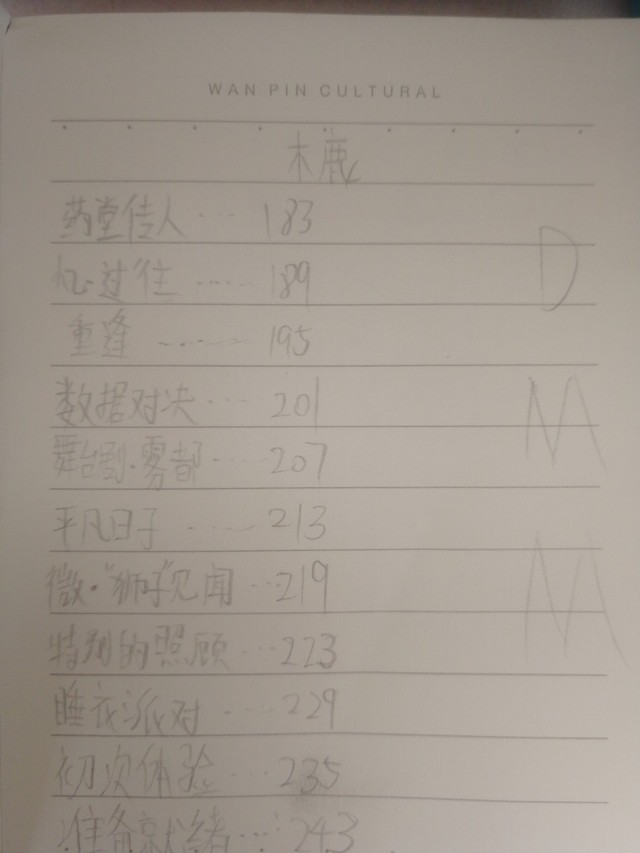 WAN PIN CULTURAL
木鹿
药堂佳人 ··· 183
忆·过往 ······ 189
重逢 ······ 195
D
数据对决 ··· 201
舞台剧·雾都 ····· 207
M
平凡日子 ······ 213
微·"狮子"见闻 ···219
M
特别的照顾 ···223
睡衣派对 ····229
初次体验 ···235
准备就绪 ···· 243